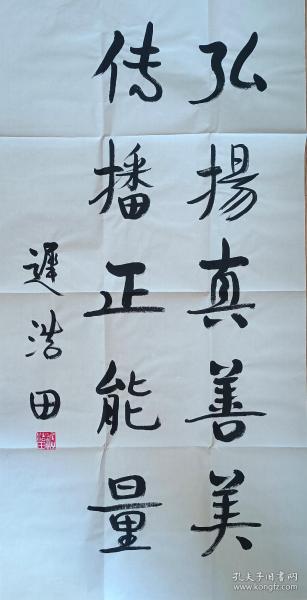 弘揚真善美
传播正能量
遲浩田
孔夫子旧书网
www.kongfz.com